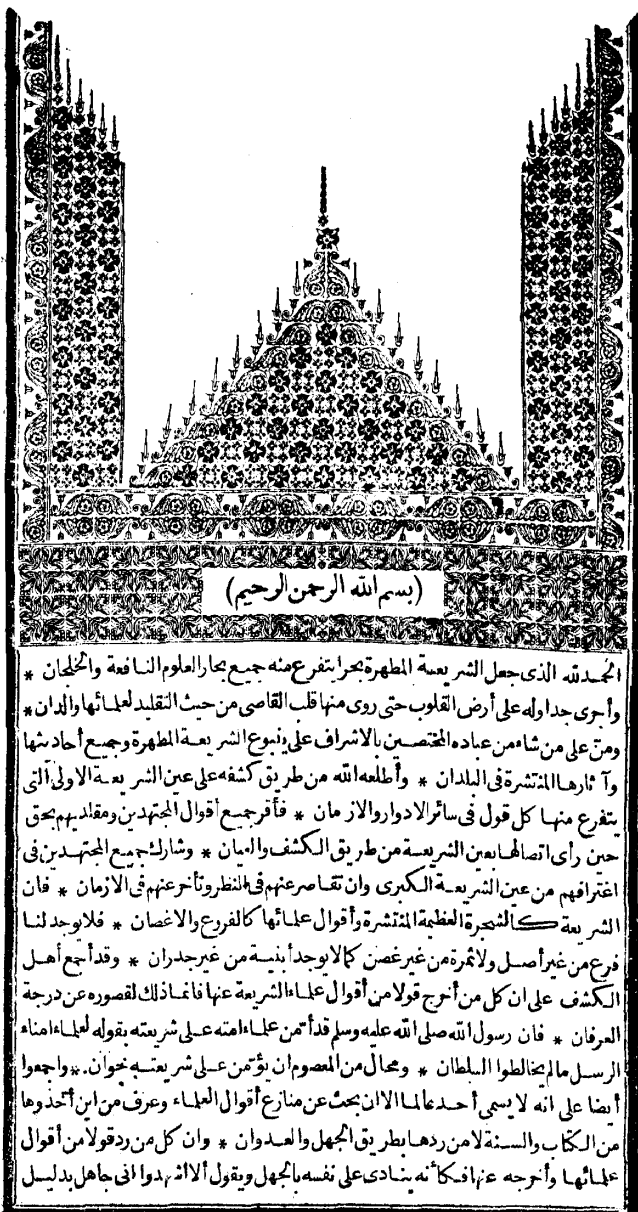 (بسم الله الرحمن الرحيم)
الحمد لله الذى جعل الشريعة المطهرة بحرا يتفرع منه جميع بحار العلوم النافعة والخلجان *
وأجرى جداوله على أرض القلوب حتى روى منها قلب القاصى من حيث التقليد لعلمائها والدان *
ومن على من شاء من عباده المختصين بالاشراف على ينبوع الشريعة المطهرة وجميع أحاديثها
وآثارها المنتشرة فى البلدان * وأطلعه الله من طريق كشفه على عين الشريعة الاولى التى
يتفرع منها كل قول فى سائر الادوار والازمان * فأقر جميع أقوال المجتهدين ومقلديهم بحق
حين رأى اتصالها بعين الشريعة من طريق الكشف والعيان * وشارك جميع المجتهدين فى
اغترافهم من عين الشريعة الكبرى وان تقاصر عنهم فى النظر وتأخر عنهم فى الازمان * فان
الشريعة كالشجرة العظيمة المنتشرة وأقوال علمائها كالفروع والاغصان * فلا يوجد لنا
فرع من غير أصل ولا ثمرة من غير غصن كما لا يوجد أبنية من غير جدران * وقد أجمع أهل
الكشف على ان كل من أخرج قولا من أقوال علماء الشريعة عنها فانما ذلك لقصوره عن درجة
العرفان * فان رسول الله صلى الله عليه وسلم قد أمن علماء امته على شريعته بقوله العلماء امناء
الرسل مالم يخالطوا السلطان * ومحال من المعصوم ان يؤمن على شريعته خوان * واجمعوا
أيضا على انه لا يسمى أحد عالما الا ان بحث عن منازع أقوال العلماء وعرف من اين أخذوها
من الكتاب والسنة لا من ردها بطريق الجهل والعدوان * وان كل من رد قولا من أقوال
علمائها وأخرجه عنها فكأنه ينادى على نفسه بالجهل ويقول ألا اشهدوا انى جاهل بدليل